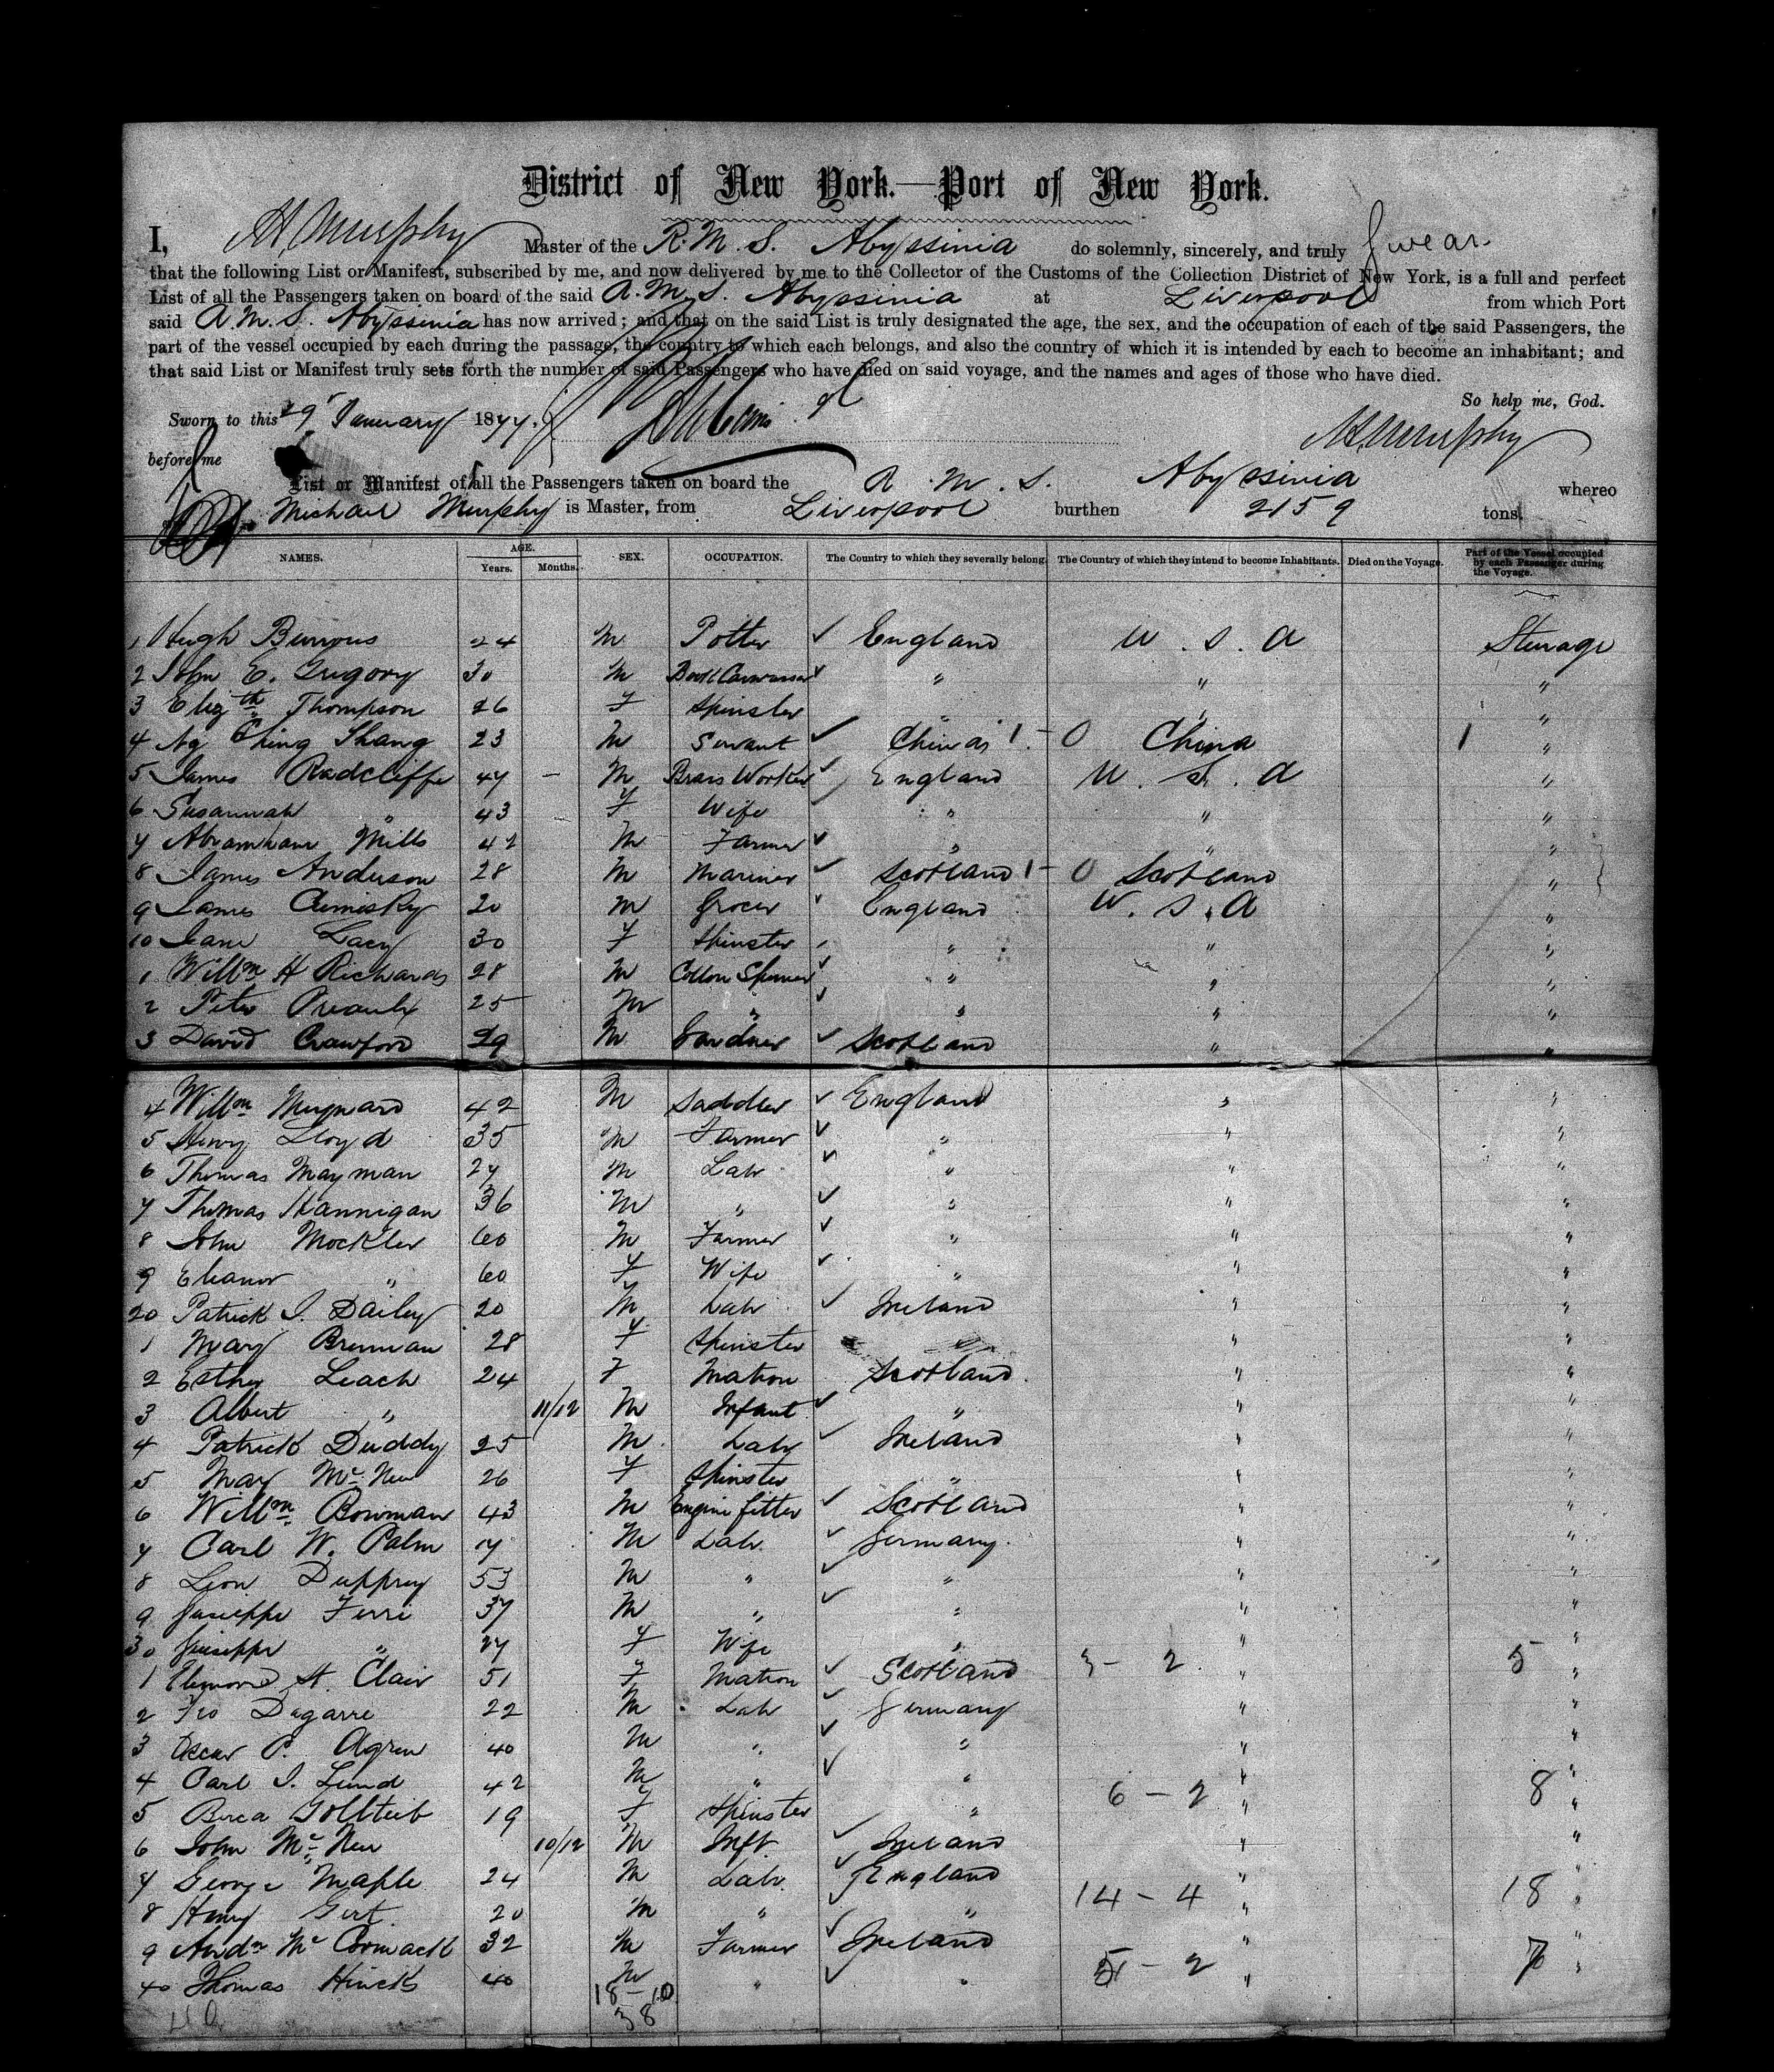 District of New York.—Port of New York.
I, M Murphy Master of the R. M. S. Abyssinia do solemnly, sincerely, and truly swear
that the following List or Manifest, subscribed by me, and now delivered by me to the Collector of the Customs of the Collection District of New York, is a full and perfect
List of all the Passengers taken on board of the said R. M. S. Abyssinia at Liverpool from which Port
said R. M. S. Abyssinia has now arrived; and that on the said List is truly designated the age, the sex, and the occupation of each of the said Passengers, the
part of the vessel occupied by each during the passage, the country to which each belongs, and also the country of which it is intended by each to become an inhabitant; and
that said List or Manifest truly sets forth the number of said Passengers who have died on said voyage, and the names and ages of those who have died.
So help me, God.
Sworn to this 29 January 1877.
M Murphy
before me
List or Manifest of all the Passengers taken on board the R. M. S. Abyssinia whereo
Michael Murphy is Master, from Liverpool burthen 2159 tons.
NAMES. AGE. Years. Months. SEX. OCCUPATION. The Country to which they severally belong. The Country of which they intend to become Inhabitants. Died on the Voyage. Part of the Vessel occupied by each Passenger during the Voyage.
1 Hugh Burrous 24 M Potter ✓ England U. S. A Steerage
2 John E. Gregory 30 M Book Canvasser ✓ " " "
3 Elizth Thompson 26 F Spinster " " "
4 Ng Ching Shang 23 M Servant ✓ China 1 - 0 China 1 "
5 James Radcliffe 47 - M Brass Worker ✓ England U. S. A "
6 Susannah " 43 F Wife " " "
7 Abramham Mills 42 M Farmer ✓ " " "
8 James Anderson 28 M Mariner ✓ Scotland 1 - 0 Scotland "
9 James 20 M Grocer England U. S. A "
10 Jane Lacy 30 F Spinster " " "
1 Willm H Richards 28 M Cotton Spinner ✓ " " "
2 Peter 25 M " ✓ " " "
3 David Crawford 29 M Gardner ✓ Scotland " "
4 Willm Maynard 42 M Saddler ✓ England " "
5 Henry Lloyd 35 M Farmer ✓ " " "
6 Thomas Mayman 27 M Labr ✓ " " "
7 Thomas Hannigan 36 M " ✓ " " "
8 John Mockler 60 M Farmer ✓ " " "
9 Eleanor " 60 F Wife ✓ " " "
20 Patrick J. Dailey 20 M Labr ✓ Ireland " "
1 Mary Brennan 28 F Spinster " " "
2 Esther Leach 24 F Matron Scotland " "
3 Albert " 11/12 M Infant ✓ " " "
4 Patrick Duddy 25 M Labr ✓ Ireland " "
5 Mary Mc New 26 F Spinster " " "
6 Willm Bowman 43 M Engine fitter ✓ Scotland " "
7 Carl W. Palm 17 M Labr ✓ Germany " "
8 Leon Duffrey 53 M " ✓ " " "
9 Guseppe Ferri 37 M " ✓ " " "
30 Guseppe " 27 F Wife " " "
1 St. Clair 51 F Matron ✓ Scotland 3 - 2 " 5 "
2 Dagarre 22 M Labr ✓ Germany " "
3 Oscar P. Agren 40 M " ✓ " " "
4 Carl J. Lund 42 M " ✓ " " "
5 Gottleib 19 F Spinster " 6 - 2 " 8 "
6 John Mc New 10/12 M Inft ✓ Ireland " "
7 George Maple 24 M Labr ✓ England " "
8 Henry Gert 20 M " ✓ " 14 - 4 " 18 "
9 Andw Mc Cormack 32 M Farmer ✓ Ireland " "
40 Thomas Hincks 40 M " ✓ " 5 - 2 " 7 "
18 - 10
38